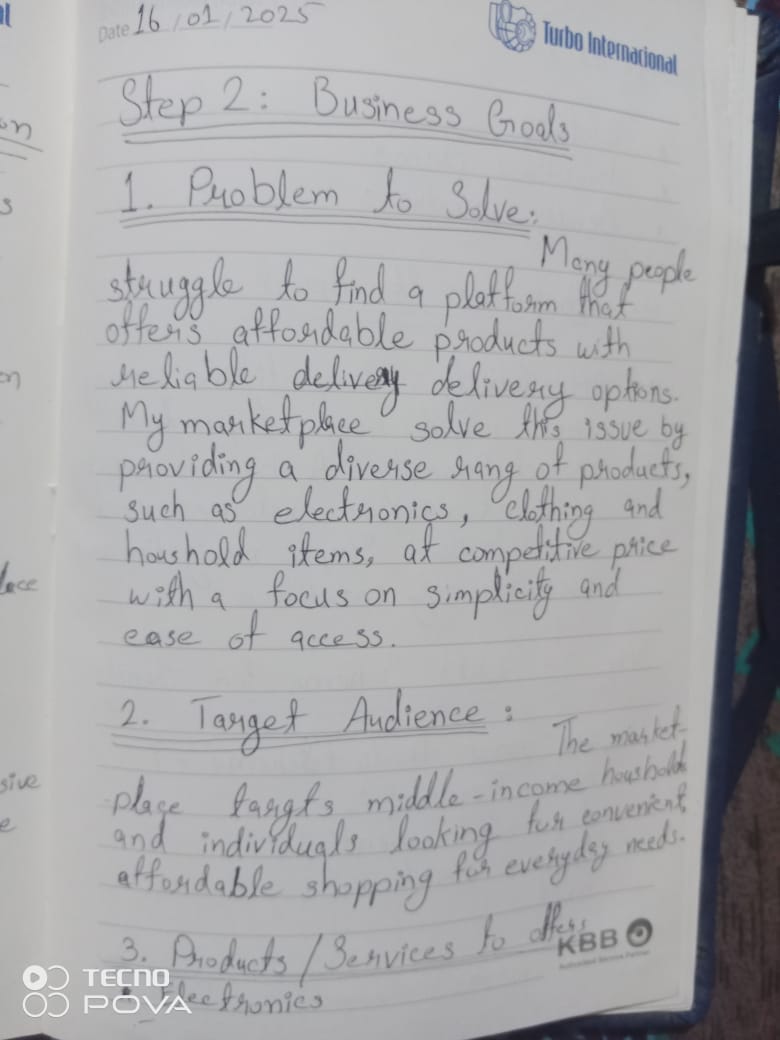 Date 16/01/2025
Turbo Internacional
Step 2: Business Goals
1. Problem to Solve:
Many people
struggle to find a platform that
offers affordable products with
reliable delivery delivery options.
My marketplace solve this issue by
providing a diverse rang of products,
such as electronics, clothing and
houshold items, at competitive price
with a focus on simplicity and
ease of access.
2. Target Audience:
The market-
place targts middle-income houshold
and individuals looking for convenient,
affordable shopping for everyday needs.
3. Products/Services to offers
KBB
• Electronics
TECNO
POVA